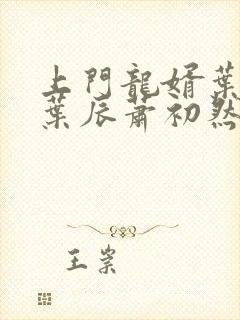 上門龍婿葉
葉辰蕭初然
王紫